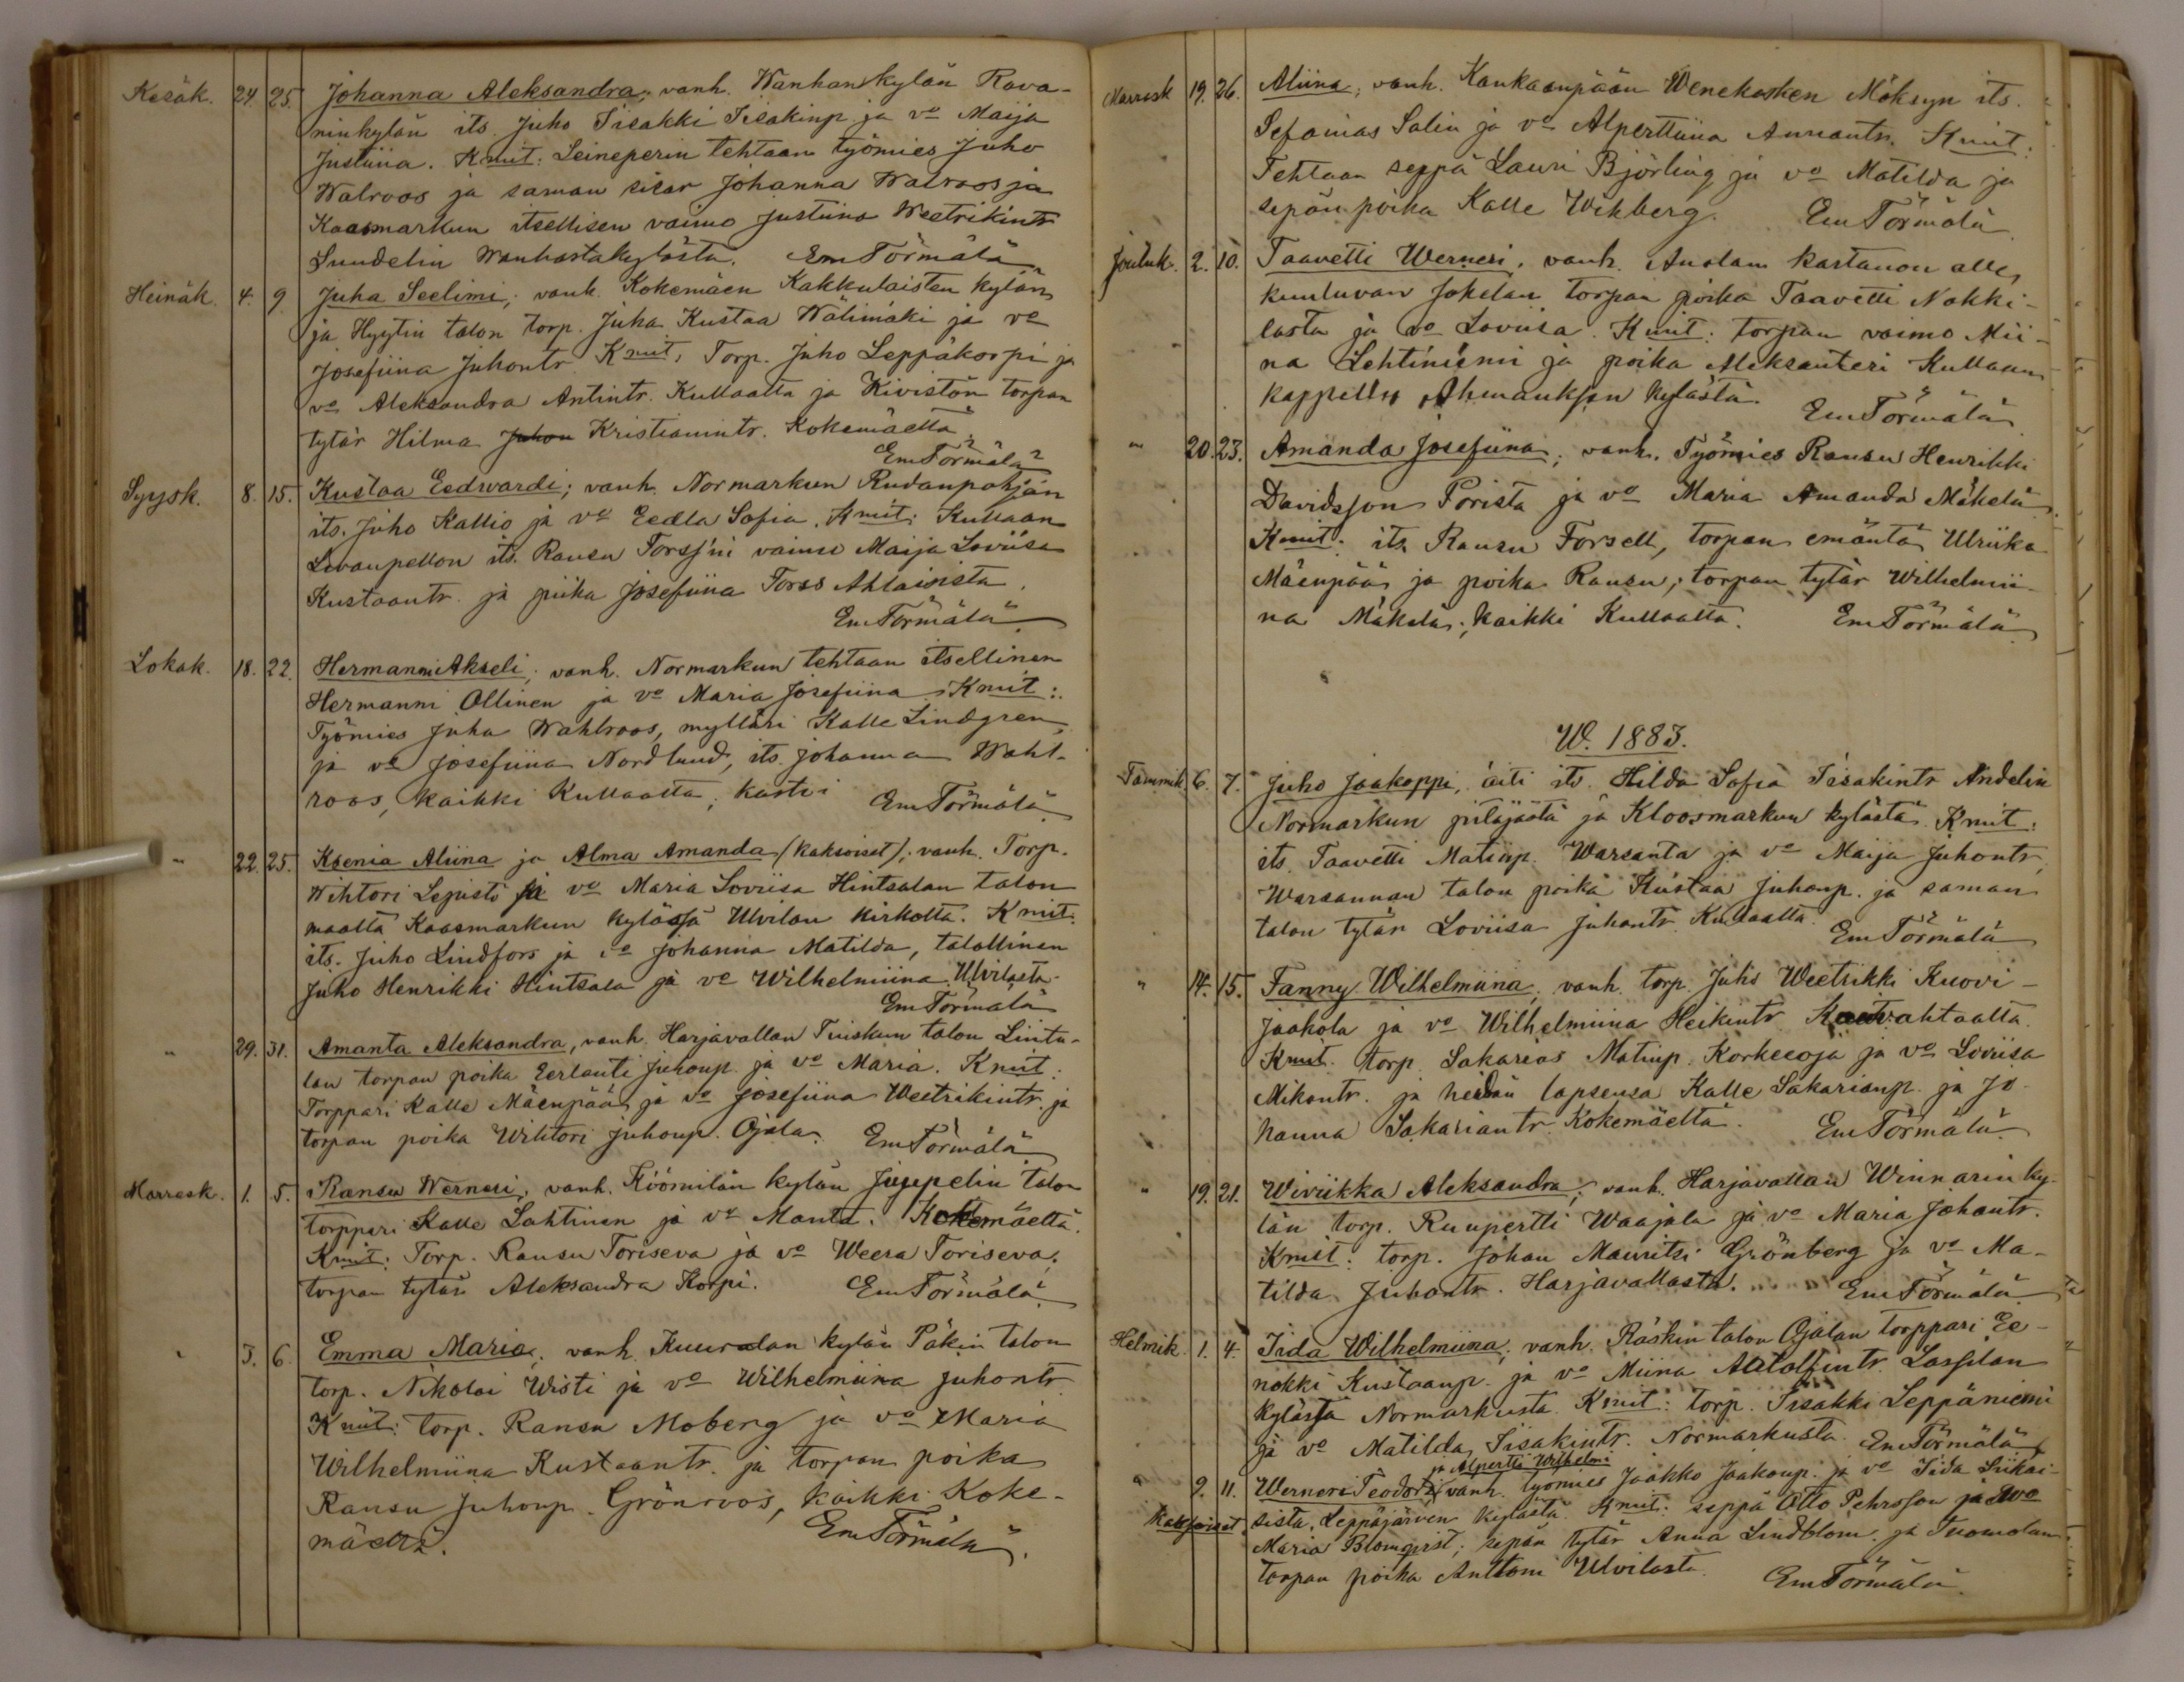 Kesäk. 24. 25. Johanna Aleksandra; vanh. Wanhankylän Rava-
ninkylän its. Juho Iisakki Iisakinp. ja vo Maija
Justiina. Kmit: Leineperin tehtaan työmies Juho
Walroos ja saman sisar Johanna Walroos ja
Kaasmarkun itsellisen vaimo Justiina Weetrikintr
Sundelin Wanhastakylästä. Em Törmälä
Heinäk. 4. 9 Juha Seelimi; vanh. Kokemäen Kakkulaisten kylän
ja Hyytin talon torp. Juha Kustaa Wälimäki ja vo
Josefiina Juhontr. Kmit: Torp. Juho Leppäkorpi ja
vo Aleksandra Antintr. Kullaalta ja Kivistön torpan
tytär Hilma Juhon Kristianintr. Kokemäeltä.
Em Törmälä
Syysk. 8. 15. Kustaa Eedwardi; vanh. Normarkun Rudanpohjan
its. Juho Kallio ja vo Eedla Sofia. Kmit: Kullaan
Levanpellon its. Ransu Torssin vaimo Maija Loviisa
Kustaantr. ja piika Josefiina Torss Ahlaisista.
Em Törmälä
Lokak. 18. 22. Hermanni Akseli; vanh. Normarkun tehtaan itsellinen
Hermanni Ollinen ja vo Maria Josefiina. Kmit:
Työmies Juha Wahlroos, mylläri Kalle Lindgren
ja vo Josefiina Nordlund, its. Johanna Wahl-
roos, kaikki Kullaalta; kastoi Em Törmälä
" 22. 25. Ksenia Aliina ja Alma Amanda (kaksoiset); vanh. Torp.
Wihtori Lepistö ja vo Maria Loviisa Hintsalan talon
maalta Kaasmarkun kylässä Ulvilan kirkolla. Kmit:
its. Juho Lindfors ja vo Johanna Matilda, talollinen
Juho Henrikki Hintsala ja vo Wilhelmiina Ulvilasta
Em Törmälä
" 29. 31. Amanta Aleksandra, vanh. Harjavallan Tuiskun talon Lintu-
lan torpan poika Eerlanti Juhonp. ja vo Maria. Kmit:
Torppari Kalle Mäenpää ja vo Josefiina Weetrikintr. ja
torpan poika Wihtori Juhonp. Ojala. Em Törmälä
Marrask. 1. 5. Ransu Werneri; vanh. Köömilän kylän Juppelin talon
torppari Kalle Lahtinen ja vo Manta. Kokemäeltä.
Kmit: Torp. Ransu Toriseva ja vo Weera Toriseva;
torpan tytär Aleksandra Korpi. Em Törmälä
" 3. 6. Emma Maria; vanh. Kuurolan kylän Päkin talon
torp. Nikolai Wisti ja vo Wilhelmiina Juhontr
Kmit: torp. Ransu Moberg ja vo Maria
Wilhelmiina Kustaantr. ja torpan poika
Ransu Juhonp. Grönroos, kaikki Koke-
mäeltä. Em Törmälä.
Marrask 19. 26. Aliina; vanh. Kankaanpään Wenekosken Mäksyn its.
Sefanias Salin ja vo Alperttiina Annantr. Kmit:
Tehtaan seppä Lauri Björling ja vo Matilda ja
sepän poika Kalle Wikberg. Em Törmälä
Jouluk. 2. 10. Taavetti Werneri; vanh. Anolan kartanon alle
kuuluvan Jokelan torpan poika Taavetti Nakki-
lasta ja vo Loviisa. Kmit: torpan vaimo Mii-
na Lehtiniemi ja poika Aleksanteri Kullaan
kappelin Ahmauksen kylästä. Em Törmälä
" 20. 23. Amanda Josefiina; vanh. Työmies Ransu Henrikki
Davidsson Porista ja vo Maria Amanda Mäkelä.
Kmit: its. Ransu Forsell, torpan emäntä Ulriika
Mäenpää ja poika Ransu; torpan tytär Wilhelmii-
na Mäkelä; kaikki Kullaalta. Em Törmälä
W. 1883.
Tammik. 6. 7. Juho Jaakoppi, äiti its. Hilda Sofia Iisakintr Andelin
Normarkun pitäjästä ja Kloosmarkun kylästä. Kmit:
its. Taavetti Matinp. Warsanta ja vo Maija Juhontr.
Warsannan talon poika Kustaa Juhonp. ja saman
talon tytär Loviisa Juhontr. Kullaalta. Em Törmälä
" 14. 15. Fanny Wilhelmiina; vanh. torp. Juho Weetrikki Kuovi-
Jaakola ja vo Wilhelmiina Heikintr.
Kmit: torp. Sakarias Matinp. Korkeeoja ja vo Loviisa
Mikontr. ja heidän lapsensa Kalle Sakarianp. ja Jo-
hanna Sakariantr. Kokemäeltä. Em Törmälä
" 19. 21. Wiviikka Aleksandra; vanh. Harjavallan Winnarin ky-
län torp. Ruupertti Waajala ja vo Maria Johantr.
Kmit: torp. Johan Mauritsi Grönberg ja vo Ma-
tilda Juhontr. Harjavallasta. Em Törmälä
Helmik. 1. 4. Iida Wilhelmiina; vanh. Räskin talon Ojalan torppari Ee-
nokki Kustaanp. ja vo Miina Aatolfintr. Lassilan
kylästä Normarkusta. Kmit: torp. Iisakki Leppäniemi
ja vo Matilda Iisakintr. Normarkusta. Em Törmälä
ja Alpertti Wilhelmi
" 9. 11. Werneri Teodor vanh. työmies Jaakko Jaakonp. ja vo Iida Siikai-
kaksoiset sista, Leppäjärven kylästä. Kmit: seppä Otto Pehrsson ja vo
Maria Blomqvist; sepän tytär Anna Lindblom ja Tuomolan
torpan poika Anttoni Ulvilasta. Em Törmälä